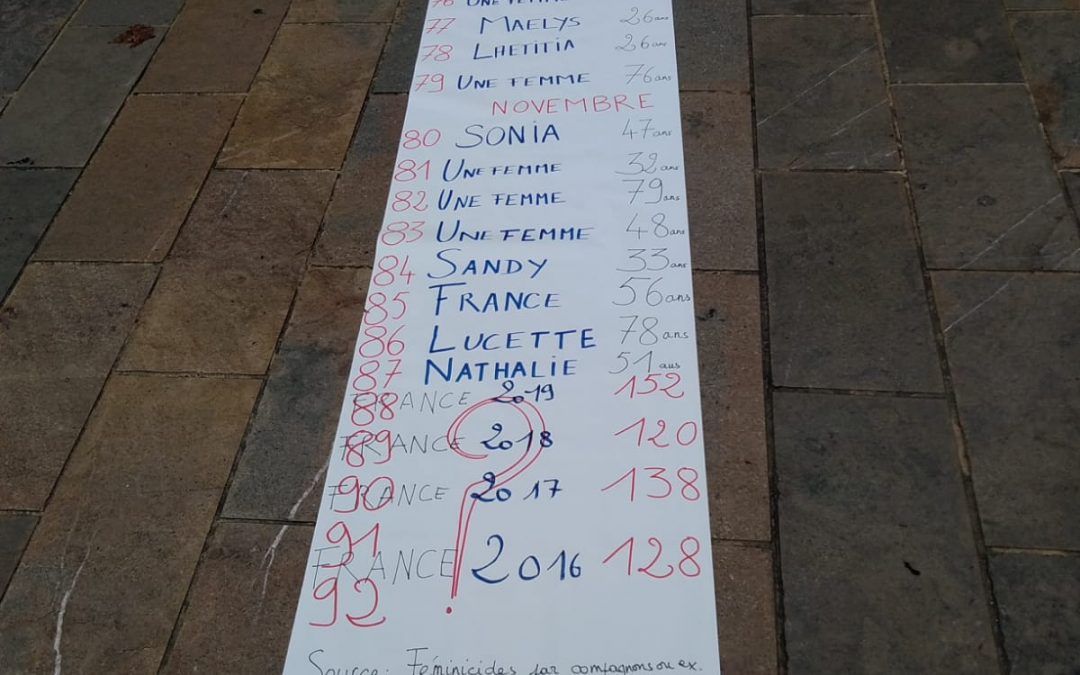 76 UNE FEMME
77 MAELYS 26 ans
78 LHETITIA 26 ans
79 UNE FEMME 76 ans
NOVEMBRE
80 SONIA 47 ans
81 UNE FEMME 32 ans
82 UNE FEMME 79 ans
83 UNE FEMME 48 ans
84 SANDY 33 ans
85 FRANCE 56 ans
86 LUCETTE 78 ans
87 NATHALIE 51 ans
88 FRANCE 2019 152
89 FRANCE 2018 120
90 FRANCE 2017 138
91
FRANCE 2016 128
92 ?
Source: Féminicides par compagnons ou ex.